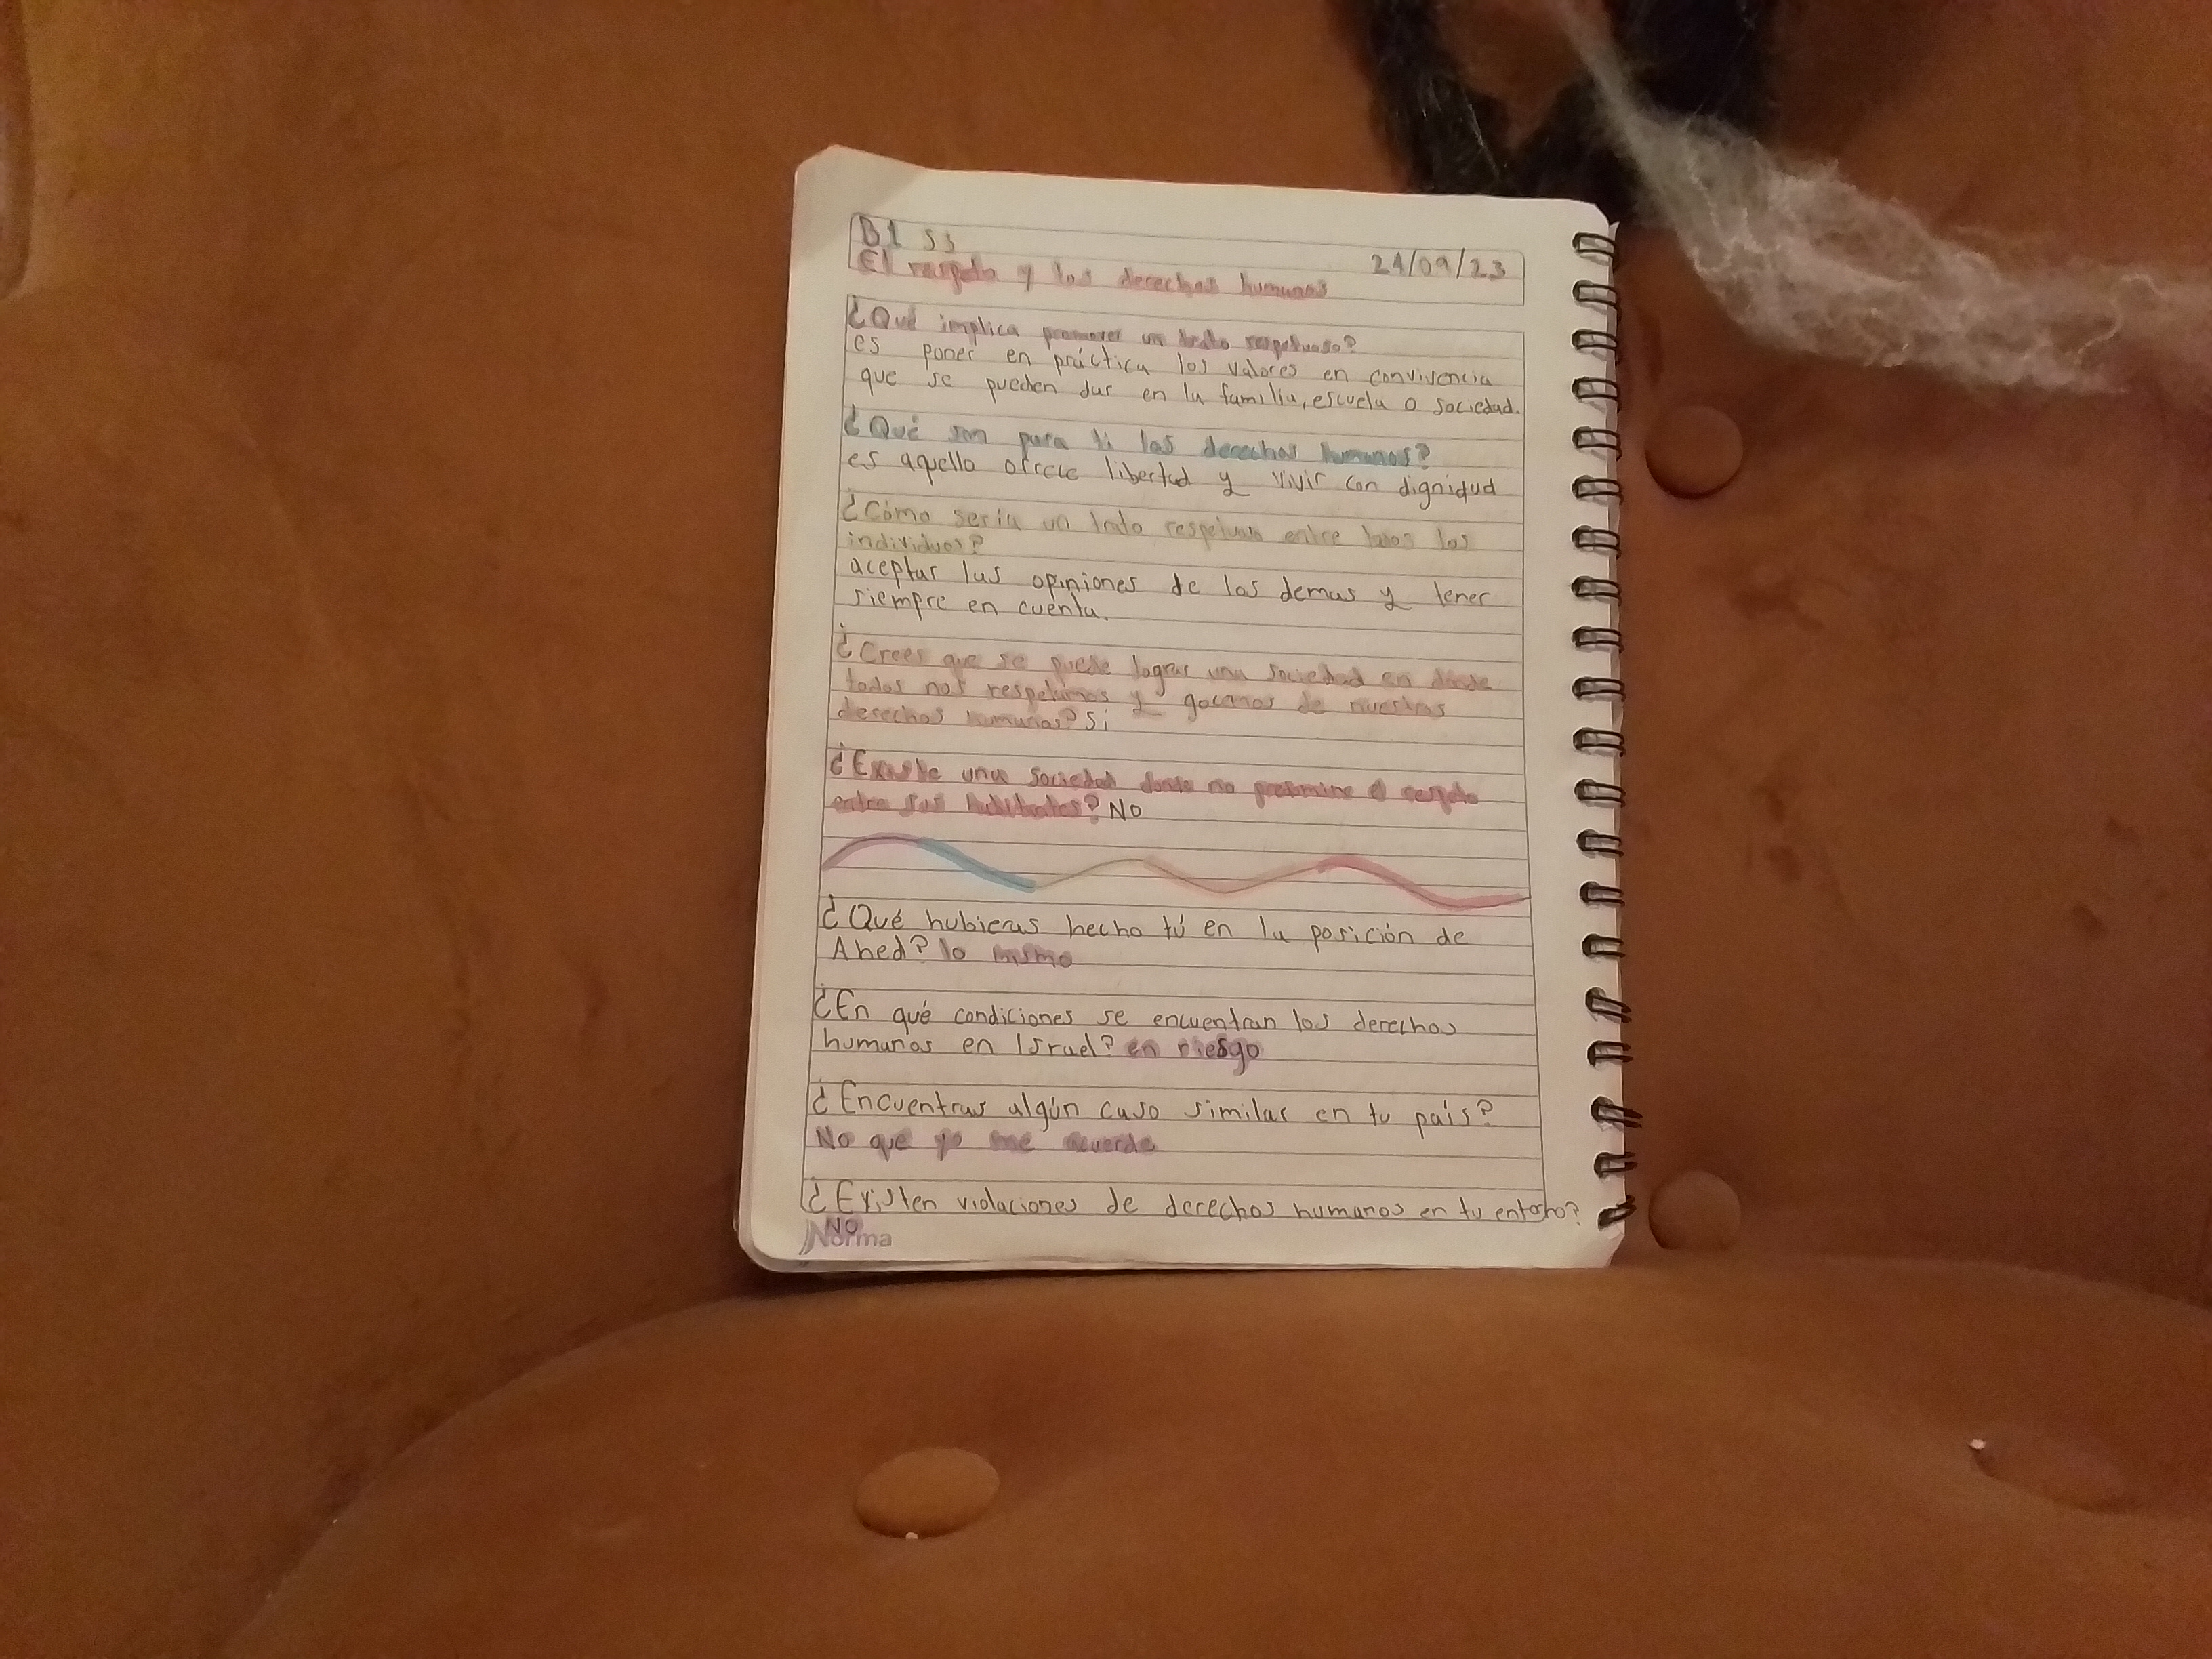 B1 S3
24/09/23
El respeto y los derechos humanos
¿Qué implica promover un trato respetuoso?
es poner en práctica los valores en convivencia
que se pueden dar en la familia, escuela o sociedad.
¿Qué son para ti los derechos humanos?
es aquello ofrece libertad y vivir con dignidad
¿Cómo sería un trato respetuoso entre todos los
individuos?
aceptar las opiniones de los demas y tener
siempre en cuenta.
¿Crees que se puede lograr una sociedad en donde
todos nos respetamos y gocemos de nuestros
derechos humanos? Si
¿Existe una sociedad donde no predomine el respeto
entre sus habitantes? No
¿Qué hubieras hecho tú en la posición de
Ahed? lo mismo
¿En qué condiciones se encuentran los derechos
humanos en Israel? en riesgo
¿Encuentras algún caso similar en tu país?
No que yo me acuerde
¿Existen violaciones de derechos humanos en tu entorno?
NO
Norma